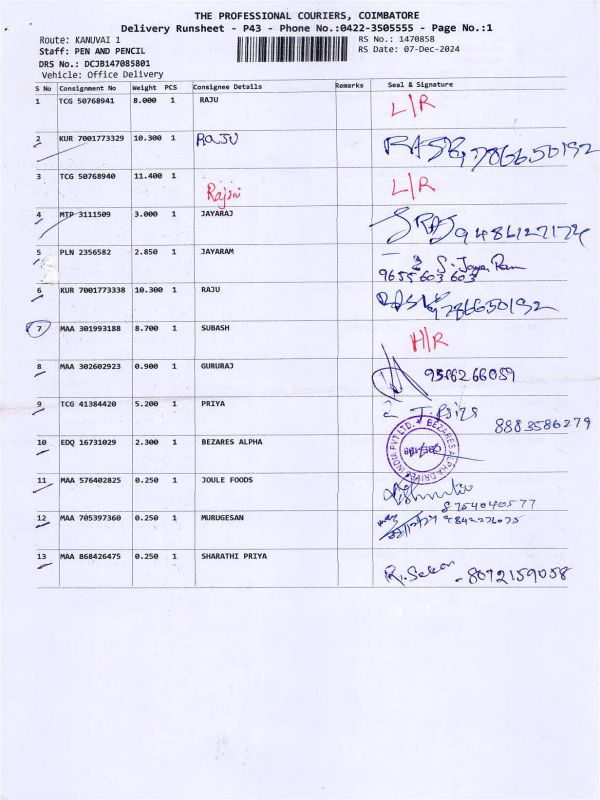 THE PROFESSIONAL COURIERS, COIMBATORE
Delivery Runsheet - P43 - Phone No.:0422-3505555 - Page No.:1
Route: KANUVAI 1 RS No.: 1470858
Staff: PEN AND PENCIL RS Date: 07-Dec-2024
DRS No.: DCJB147085801
Vehicle: Office Delivery
S No Consignment No Weight PCS Consignee Details Remarks Seal & Signature
1 TCG 50768941 8.000 1 RAJU L/R
2 KUR 7001773329 10.300 1 RAJU
3 TCG 50768940 11.400 1 L/R
4 MTP 3111509 3.000 1 JAYARAJ
5 PLN 2356582 2.850 1 JAYARAM S. Jaya Ram
9655 603 603
6 KUR 7001773338 10.300 1 RAJU
7 MAA 301993188 8.700 1 SUBASH H/R
8 MAA 302602923 0.900 1 GURURAJ
9 TCG 41384420 5.200 1 PRIYA 8883586279
10 EDQ 16731029 2.300 1 BEZARES ALPHA
11 MAA 576402825 0.250 1 JOULE FOODS
8754040577
12 MAA 705397360 0.250 1 MURUGESAN
13 MAA 868426475 0.250 1 SHARATHI PRIYA
8072159058